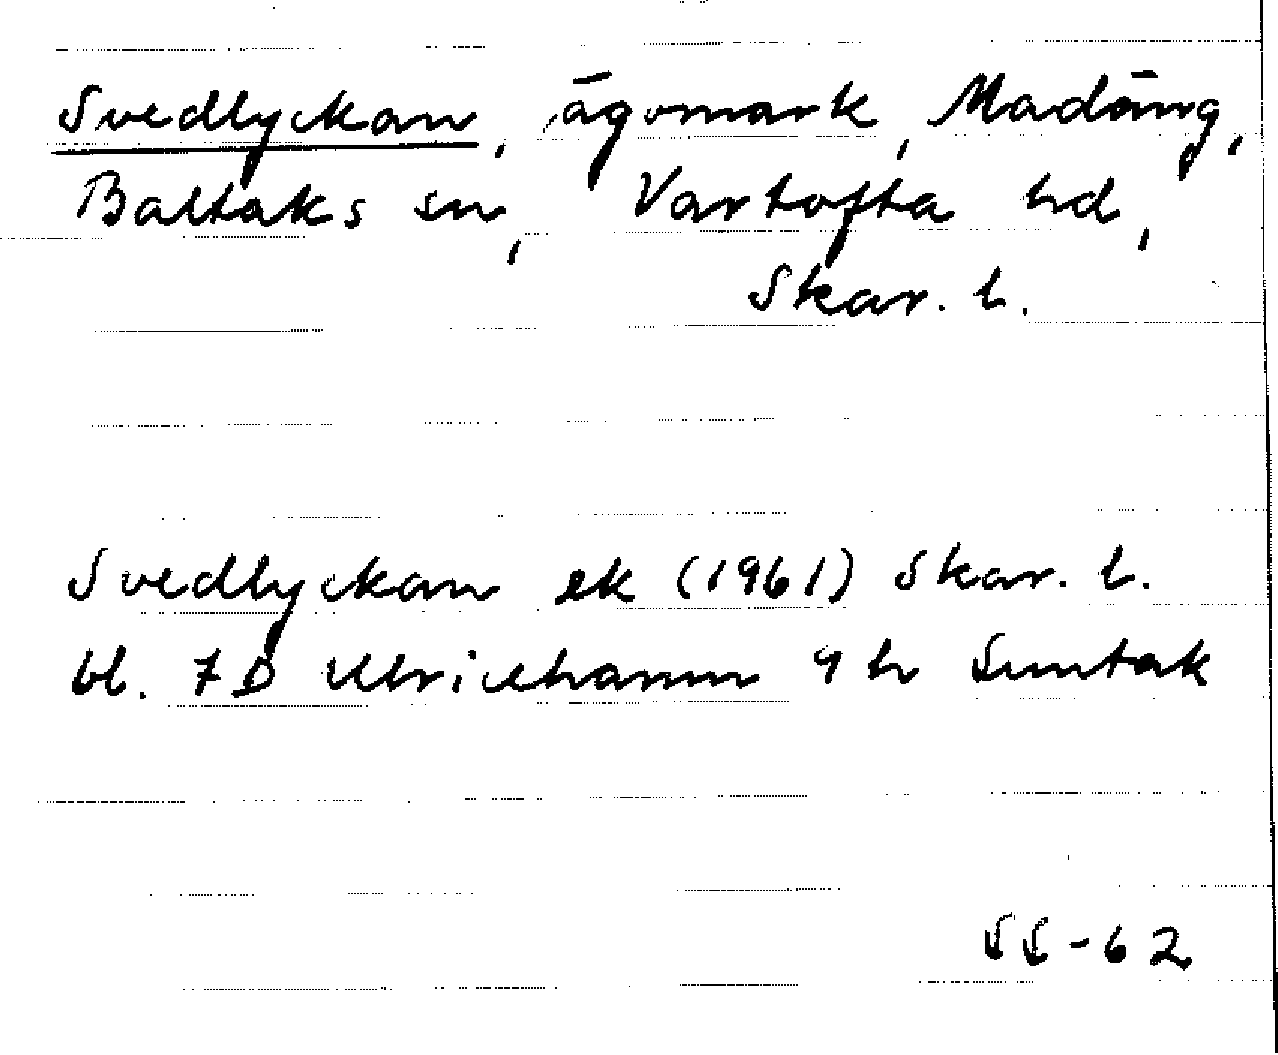 Svedlyckan, ägomark, Madäng,
Baltaks sn, Vartofta hd,
Skar. l.
Svedlyckan ek (1961) Skar. l.
bl. 7D Ulricehamn 9 h Suntak
SS-62